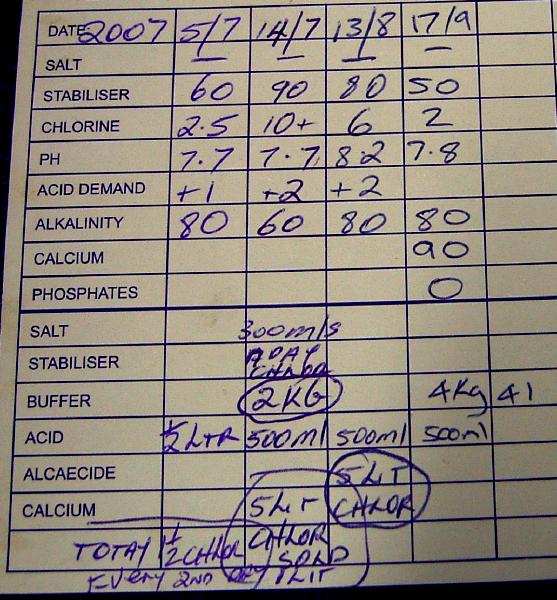 DATE 2007 5/7 14/7 13/8 17/9
SALT — — — —
STABILISER 60 90 80 50
CHLORINE 2.5 10+ 6 2
PH 7.7 7.7 8.2 7.8
ACID DEMAND +1 +2 +2
ALKALINITY 80 60 80 80
CALCIUM 90
PHOSPHATES 0
SALT 300m/s
STABILISER A DAY
CHLOR
BUFFER 2KG 4Kg 41
ACID 1/2 LTR 500ml 500ml 500ml
ALCAECIDE 5LIT
CALCIUM 5LIT CHLOR
TOTAY 1/2 CHLOR CHLOR
SOLD
EVERY 2ND DAY 1LIT